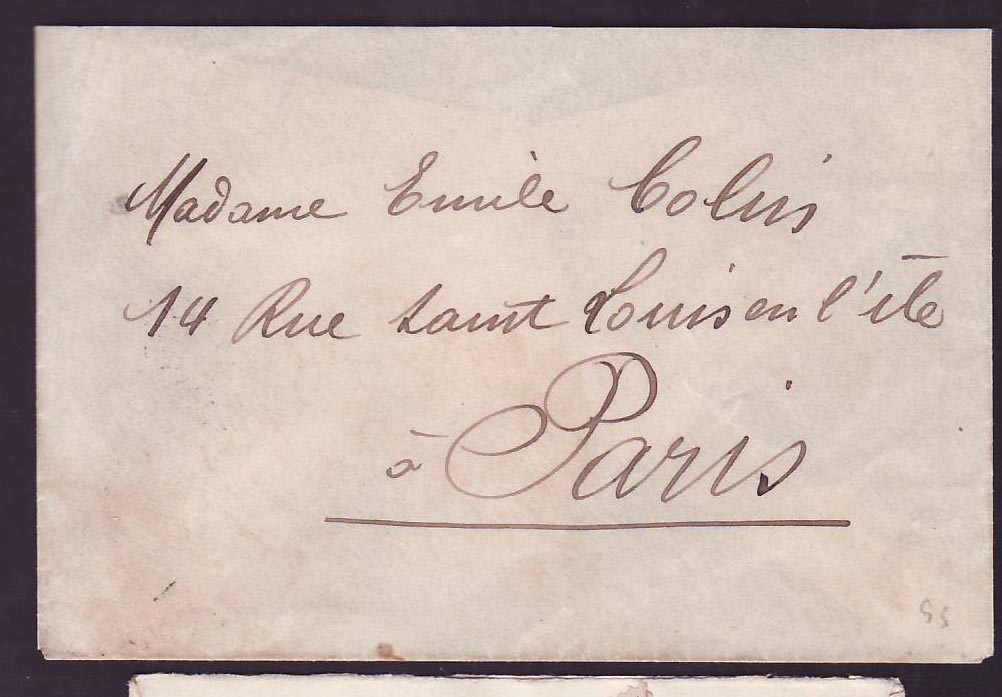 Madame Emile Colin
14 Rue Saint Louis en l'île
à Paris